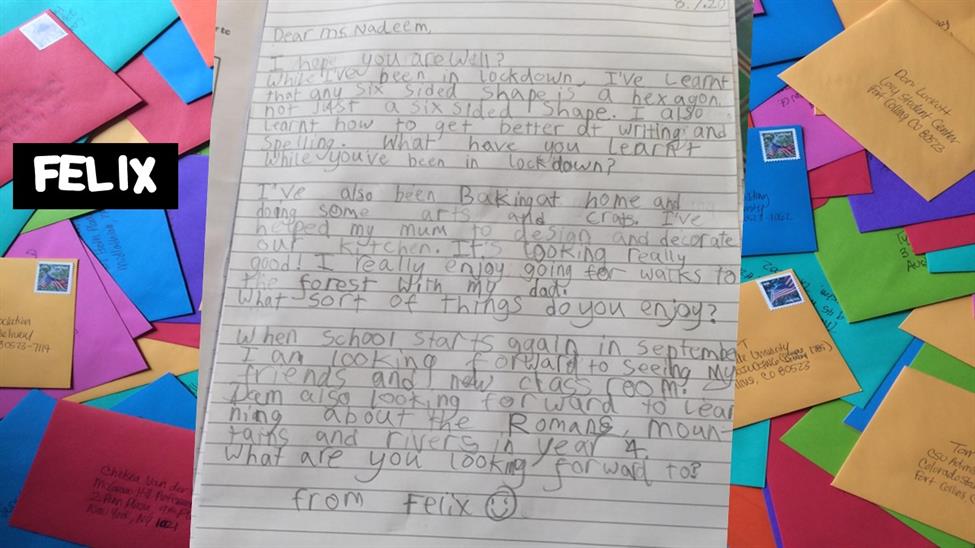 FELIX
8.7.20
Dear Ms Nadeem,
I hope you are well?
While I've been in lockdown, I've learnt
that any six sided shape is a hexagon,
not just a six sided shape. I also
learnt how to get better at writing and
spelling. What have you learnt
while you've been in lockdown?
I've also been Baking at home and
doing some arts and crats. I've
helped my mum to design and decorate
our kytchen. It's looking really
good! I really enjoy going for walks to
the forest with my dad.
What sort of things do you enjoy?
When school starts again in septembe
I am looking forward to seeing My
friends and new class room.
I am also looking forward to lear
ning about the Romans, moun-
tains and rivers in year 4.
What are you looking forward to?
from Felix
Don Luncott
Lory Student Center
Fort Collins CO 80523
80523-7114
CO 80523
Chelsea Van der
New York, NY
Tom
CSU Admi
Colorado Sta
Fort Collins, C